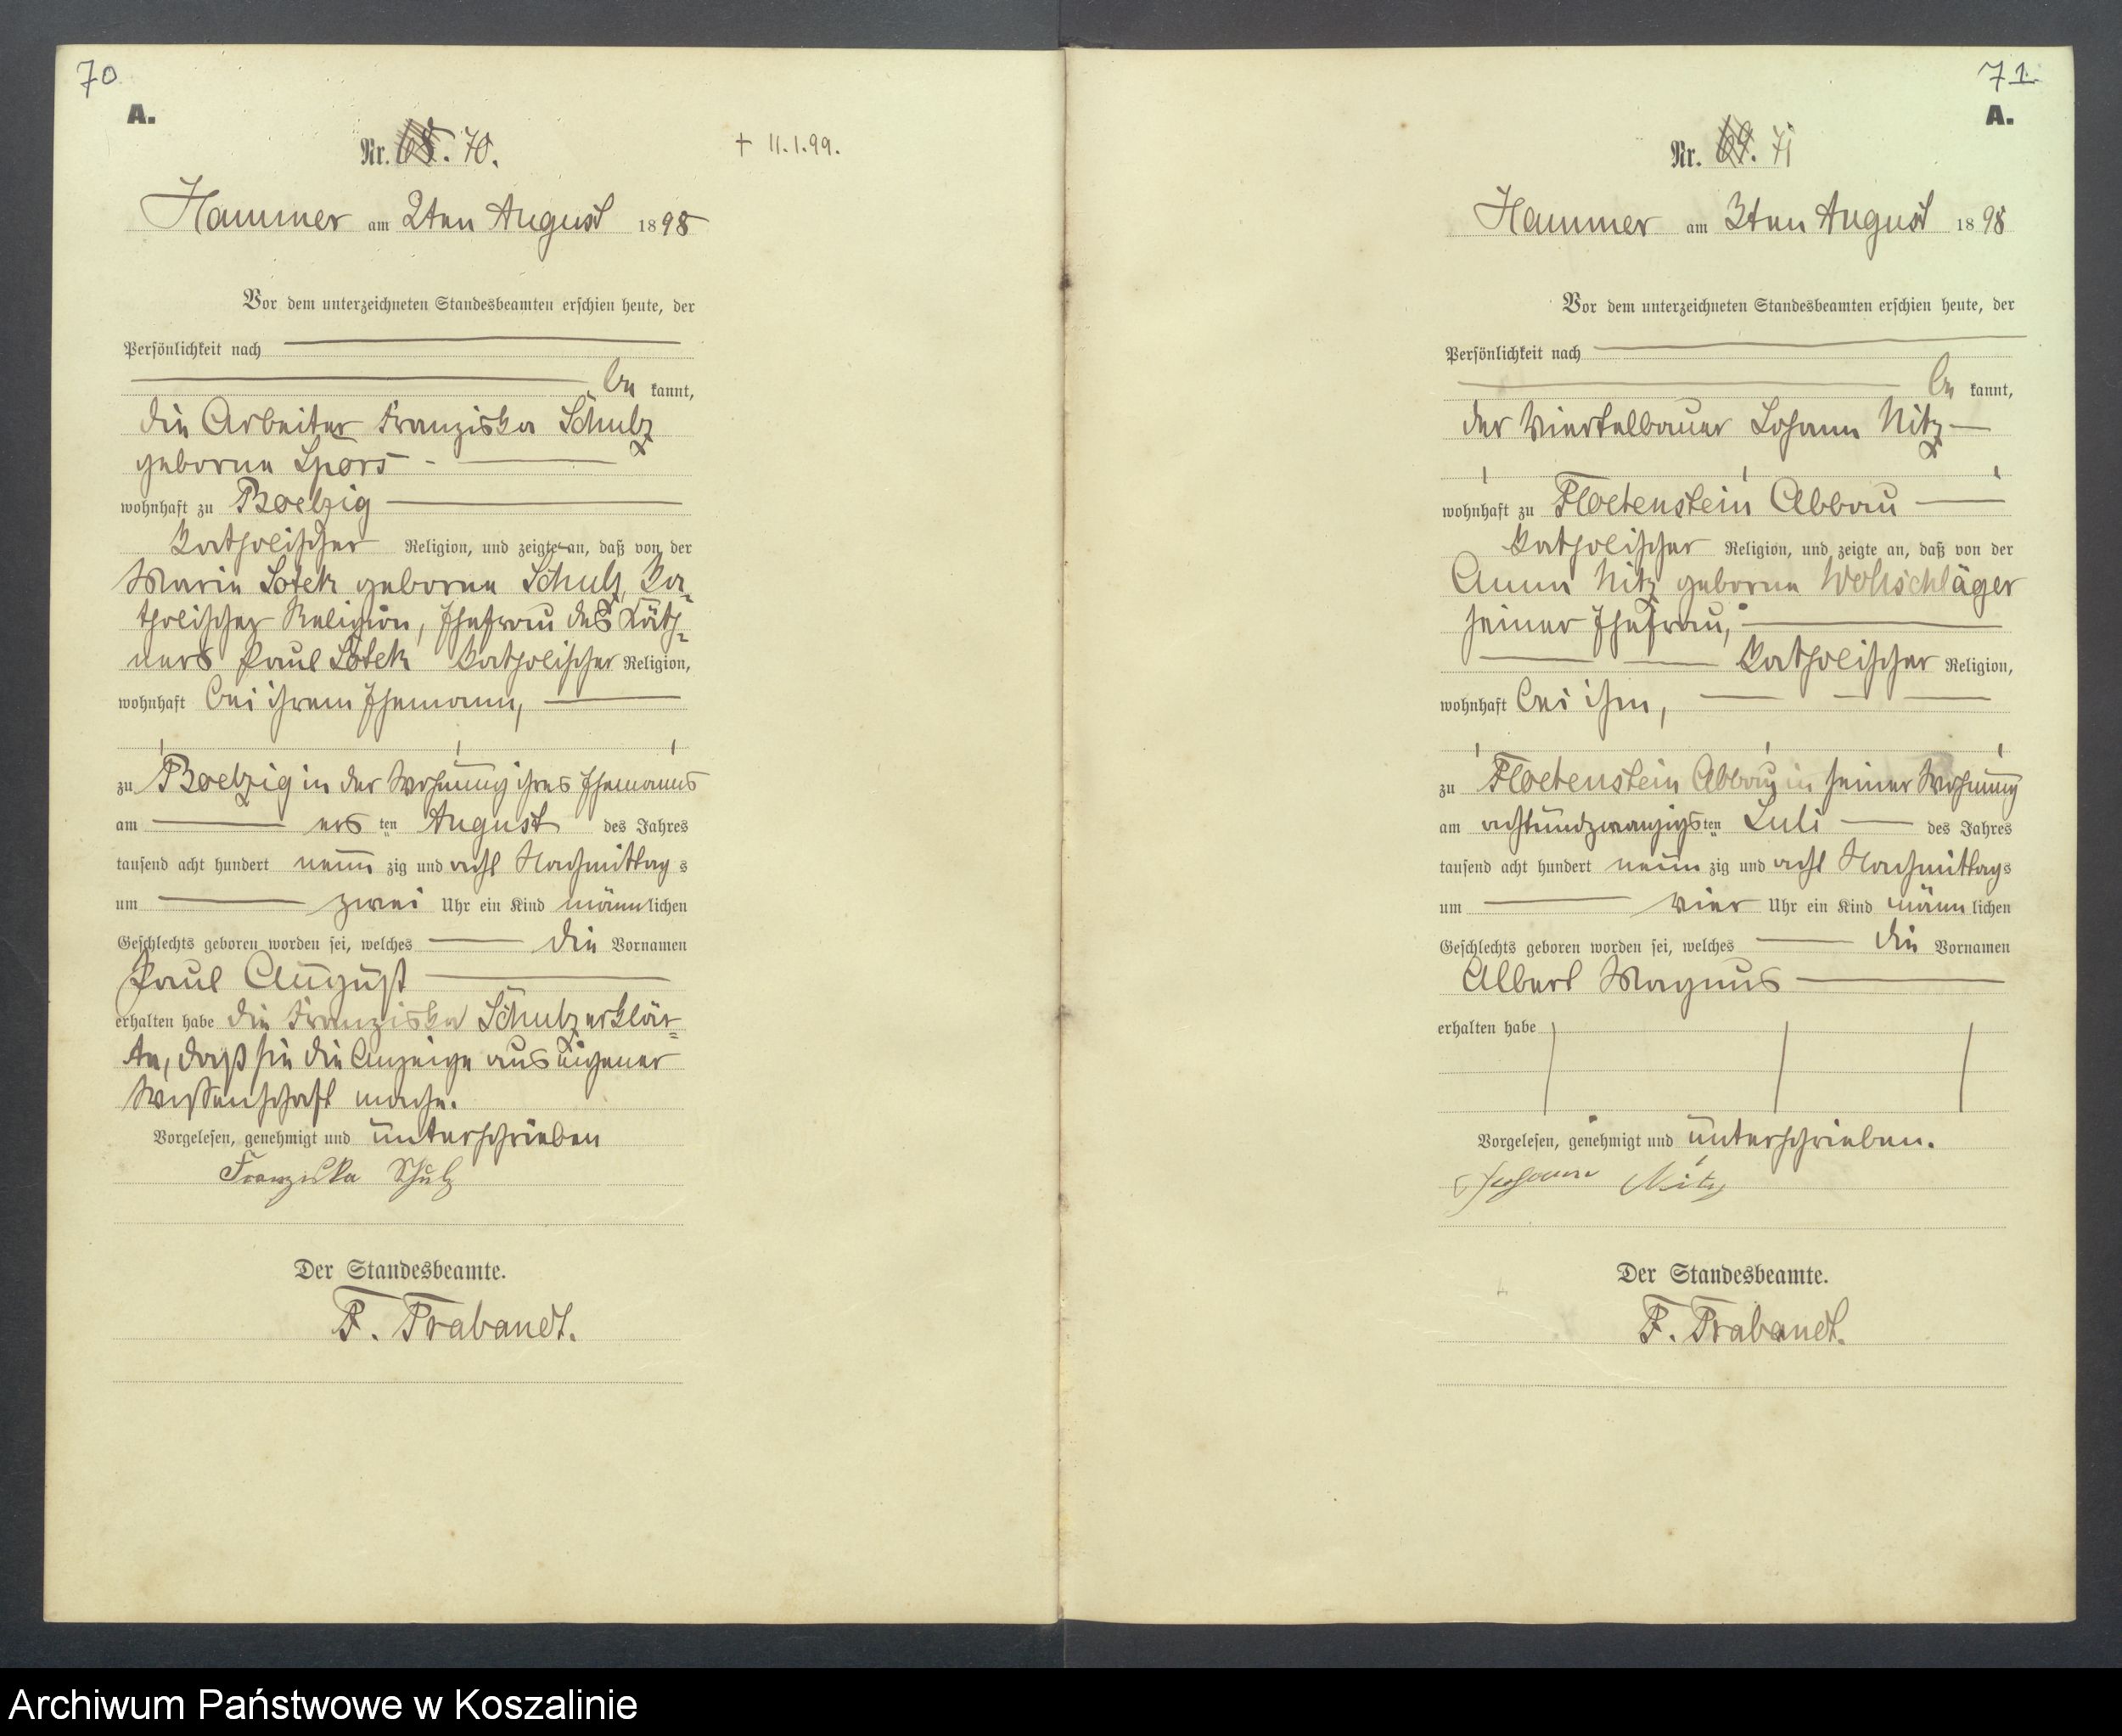 70
A.
Nr. 68. 70.
† 11.1.99.
Hammer am 2ten August 1898
Vor dem unterzeichneten Standesbeamten erschien heute, der
Persönlichkeit nach
be kannt,
die Arbeiter Franziska Schulz
geborne Spors
wohnhaft zu Boelzig
katholischer Religion, und zeigte an, daß von der
Marie Lotek geborne Schulz, ka-
tholischer Religion, Ehefrau des Käth-
ners Paul Lotek katholischer Religion,
wohnhaft bei ihrem Ehemann,
zu Boelzig in der Wohnung ihres Ehemanns
am ers ten August des Jahres
tausend acht hundert neun zig und acht Nachmittag s
um zwei Uhr ein Kind männ lichen
Geschlechts geboren worden sei, welches die Vornamen
Paul August
erhalten habe die Franziska Schulz erklär-
te, daß sie die Anzeige aus eigener
Wissenschaft mache.
Vorgelesen, genehmigt und unterschrieben
Franziska Schulz
Der Standesbeamte.
F. Prabandt.
71
A.
Nr. 69. 71
Hammer am 3ten August 1898
Vor dem unterzeichneten Standesbeamten erschien heute, der
Persönlichkeit nach
be kannt,
der Viertelbauer Johann Nitz
wohnhaft zu Floetenstein Abbau
katholischer Religion, und zeigte an, daß von der
Anna Nitz geborne Wollschläger
seiner Ehefrau,
katholischer Religion,
wohnhaft bei ihm,
zu Floetenstein Abbau in seiner Wohnung
am achtundzwanzigs ten Juli des Jahres
tausend acht hundert neun zig und acht Nachmittag s
um vier Uhr ein Kind männ lichen
Geschlechts geboren worden sei, welches die Vornamen
Albert Magnus
erhalten habe
Vorgelesen, genehmigt und unterschrieben.
Johann Nitz
Der Standesbeamte.
F. Prabandt.
Archiwum Państwowe w Koszalinie